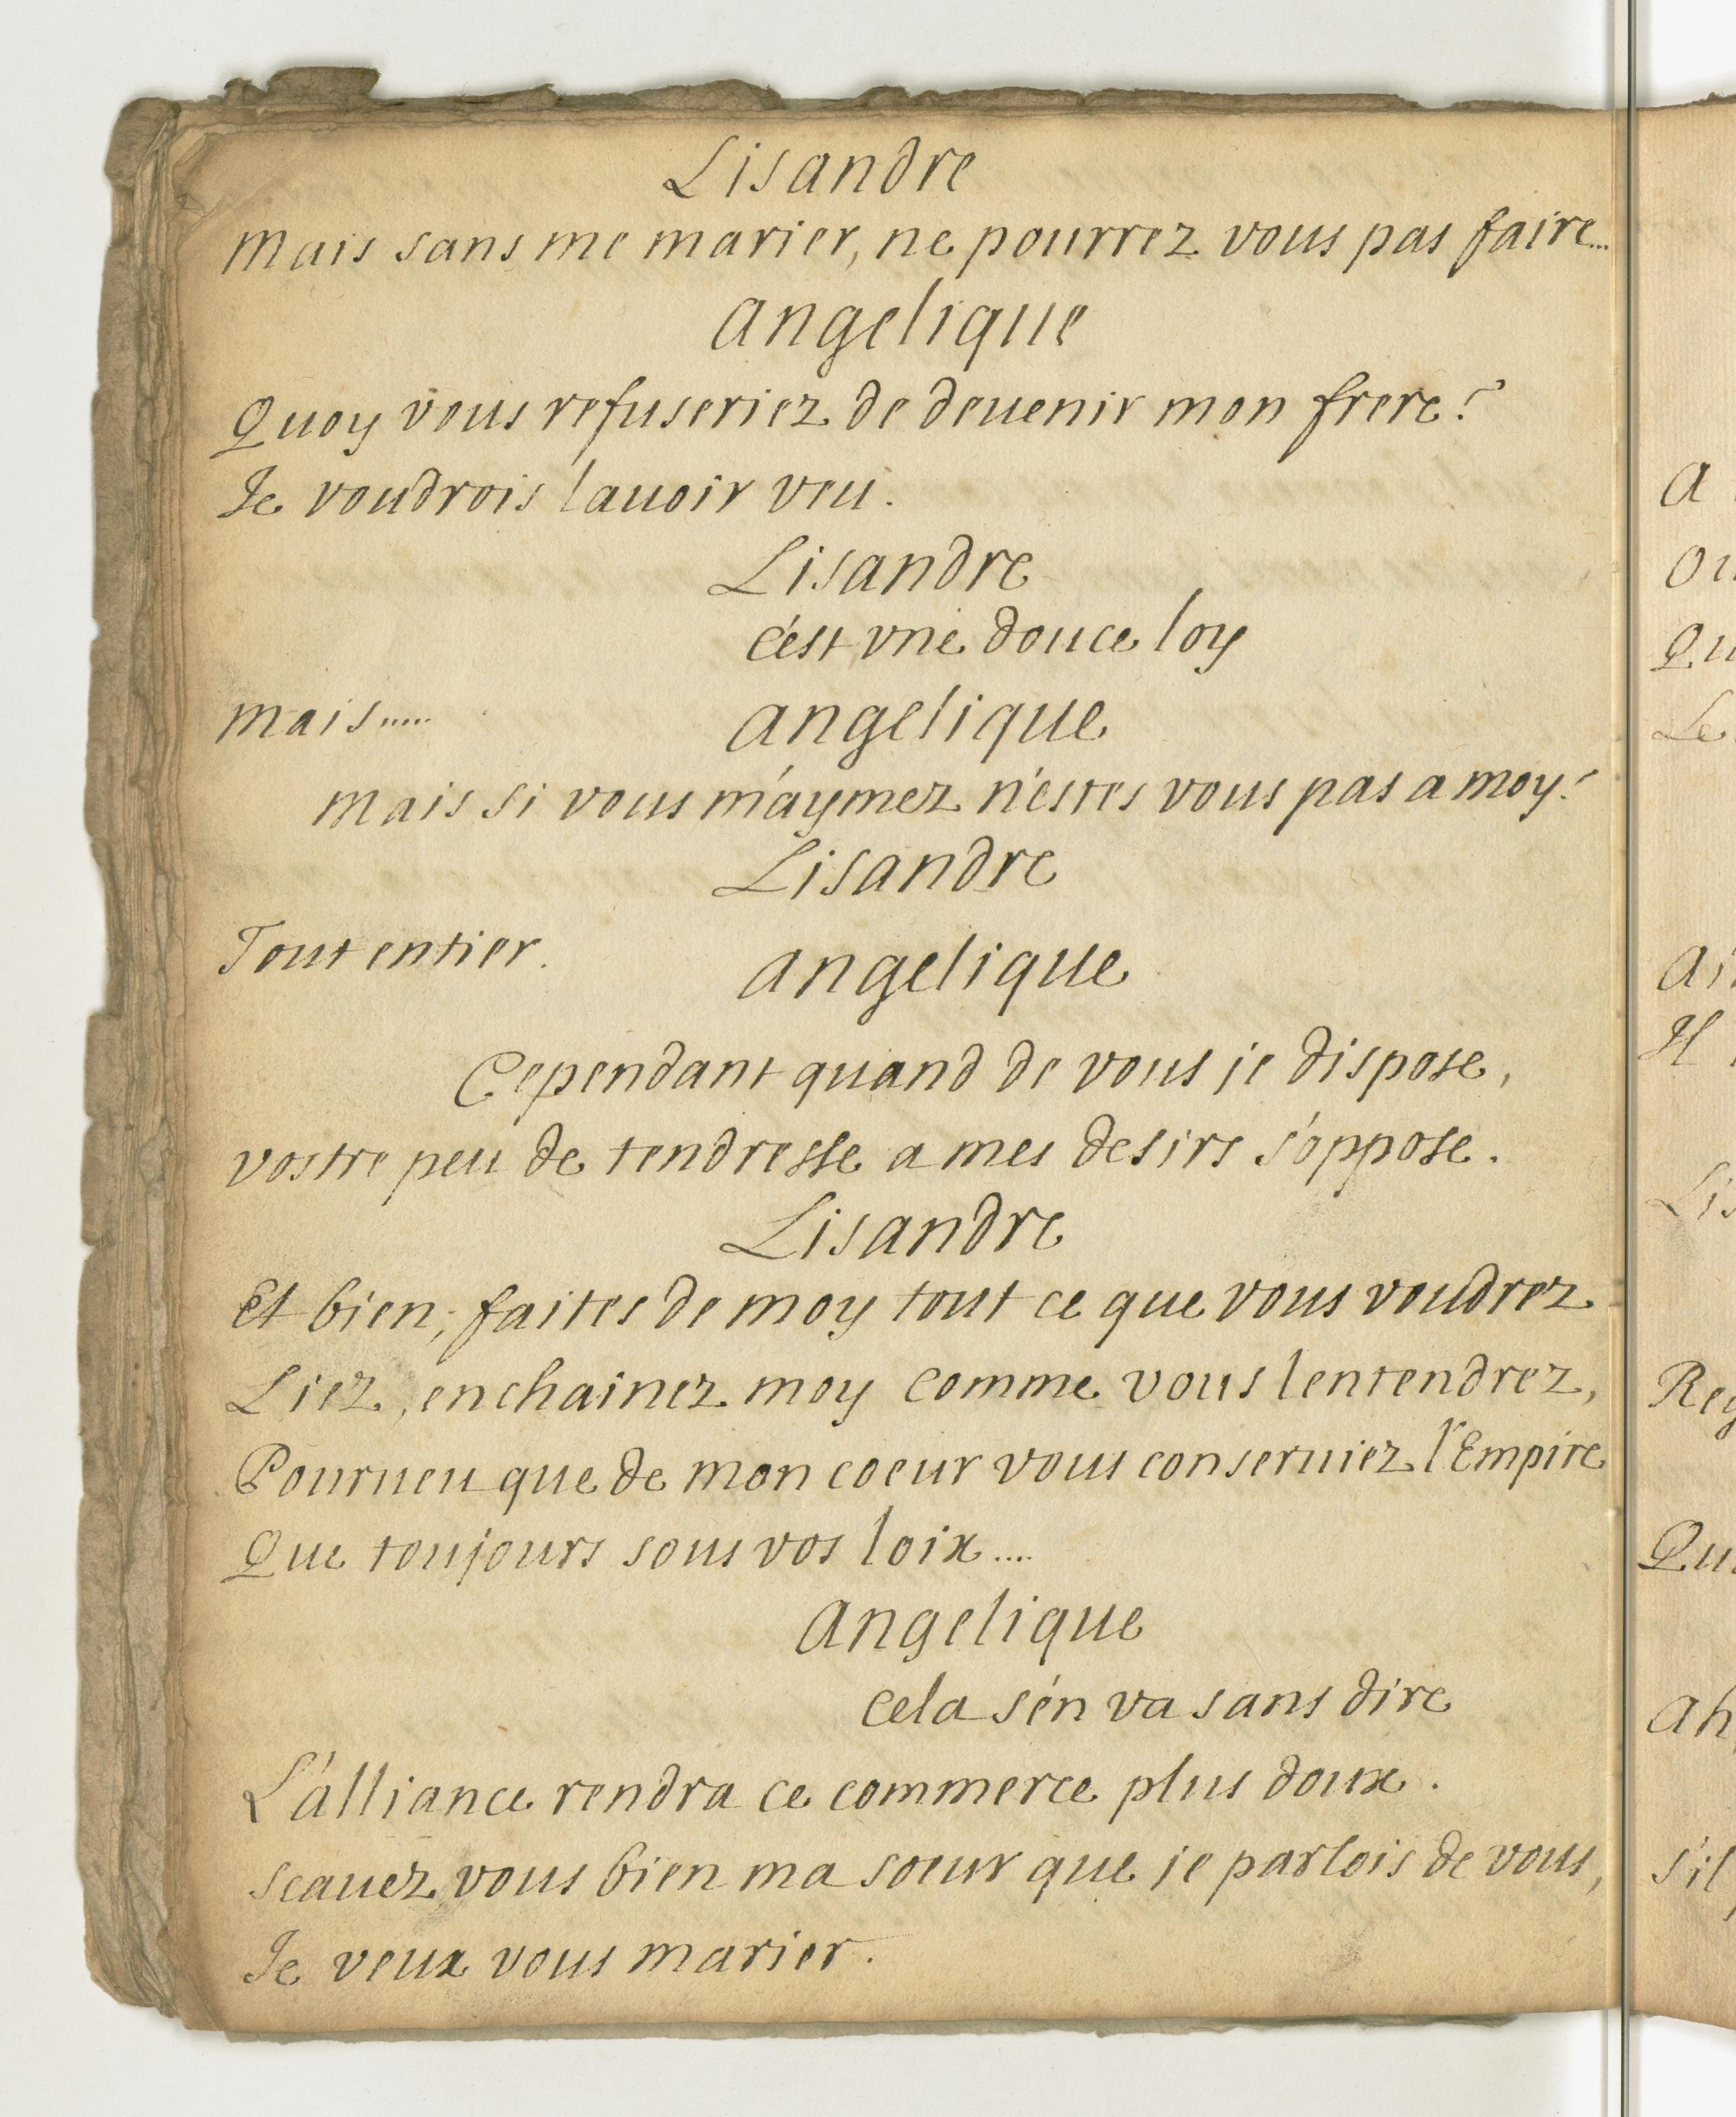 Lisandre
Mais sans me marier, ne pourrez vous pas faire...
Angelique
Quoy vous refuseriez de deuenir mon frere?
Je voudrois lauoir veu.
Lisandre
c'est vne douce loy
Mais.....
Angelique
Mais si vous m'aymez n'estes vous pas a moy?
Lisandre
Tout entier.
Angelique
Cependant quand de vous je dispose,
vostre peu de tendresse a mes desirs s'oppose.
Lisandre
Et bien, faites de moy tout ce que vous voudrez
Liez, enchainez moy comme vous lentendrez,
Pourueu que de mon coeur vous conseruiez l'Empire
Que toujours sous vos loix....
Angelique
Cela s'en va sans dire
L'alliance rendra ce commerce plus doux.
scauez vous bien ma soeur que je parlois de vous,
Je veux vous marier.
A
Ou
Qu
Le
Ai
Il
Lis
Rey
Qu
Ah
s'il